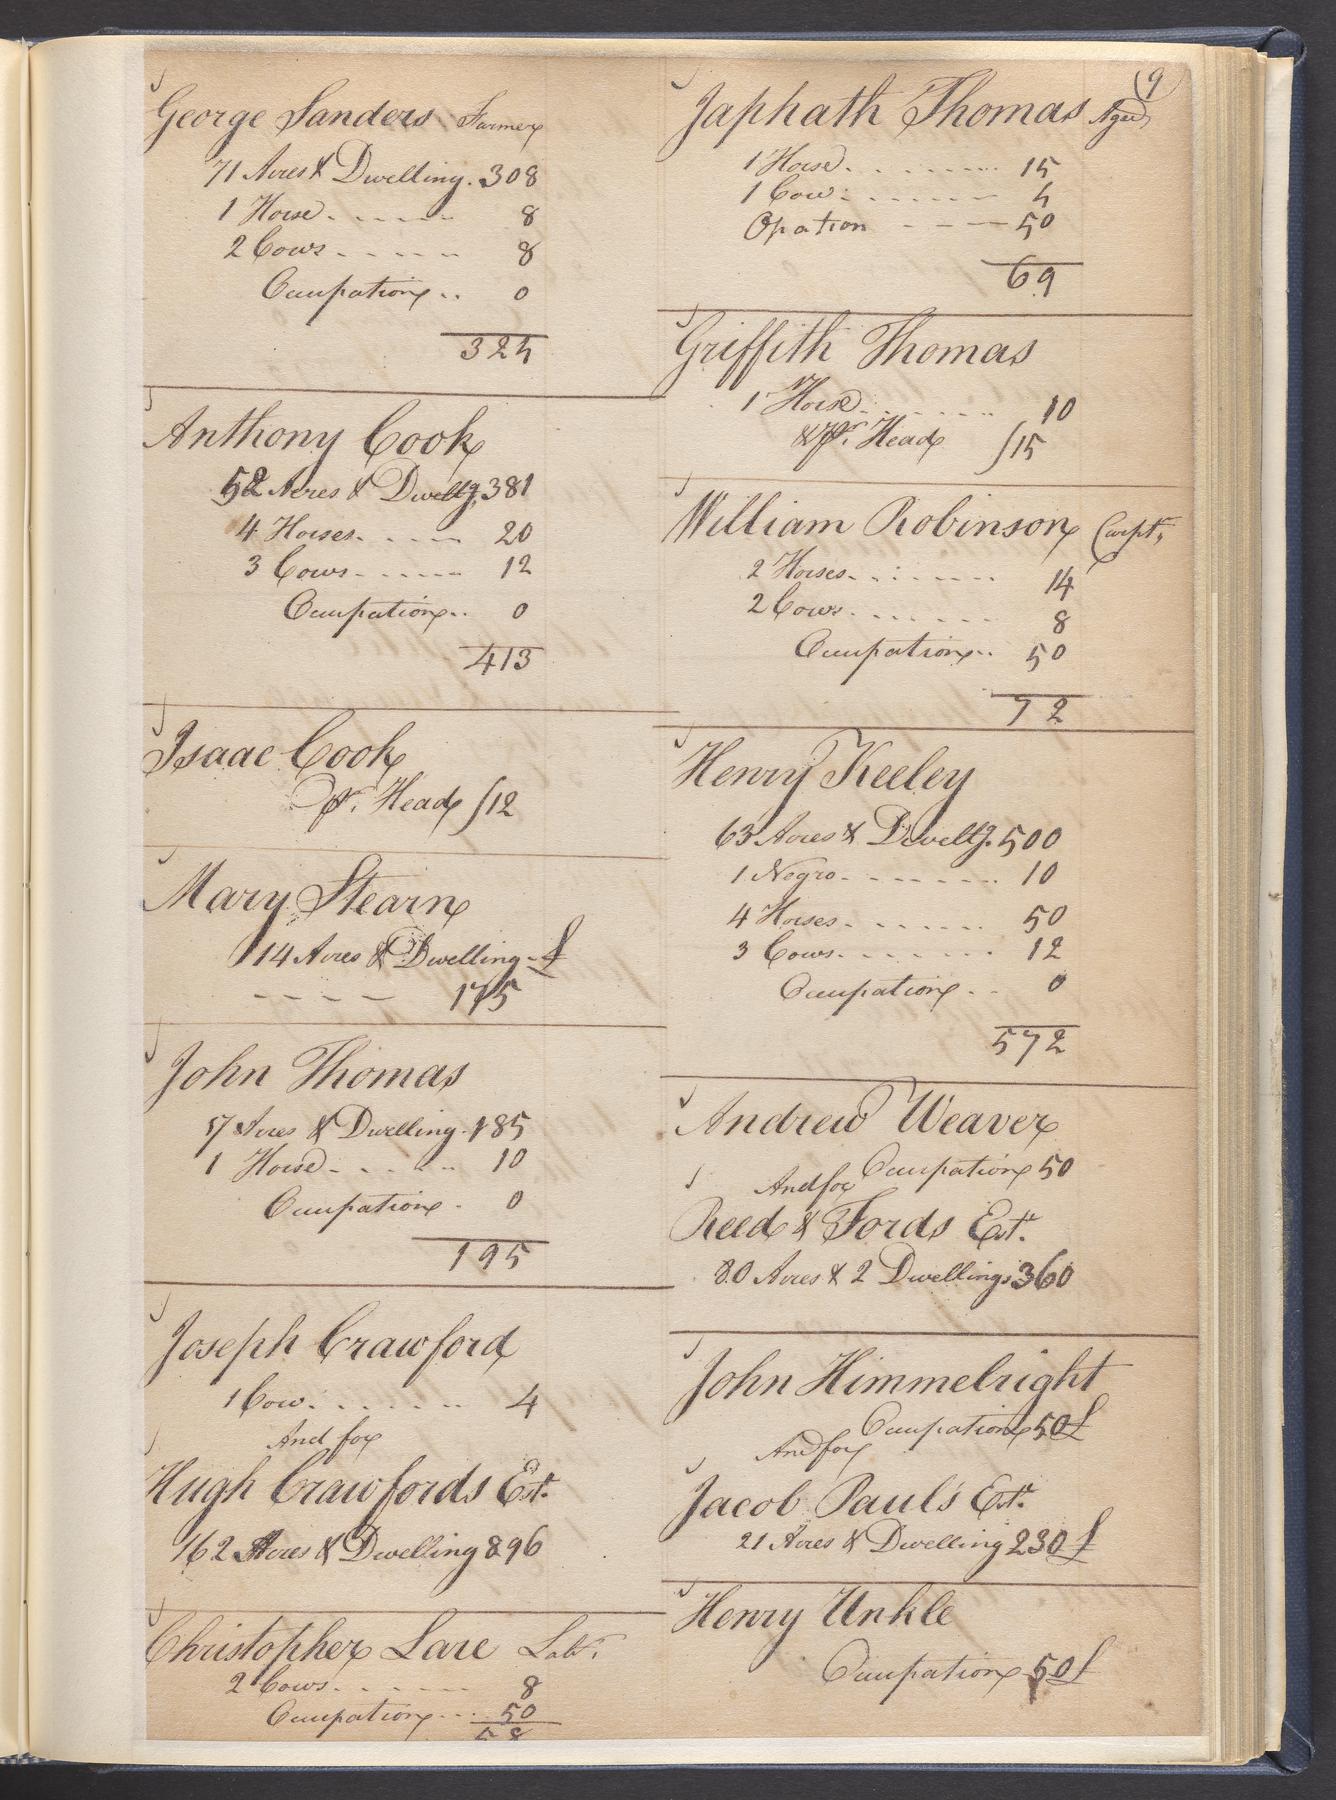 George Sanders Farmer
71 Acres & Dwelling. 308
1 Horse. 8
2 Cows 8
Occupation .. 0
324
Anthony Cook
52 Acres & Dwellg. 381
4 Horses. 20
3 Cows 12
Occupation .. 0
413
Isaac Cook
pr. Head 12
Mary Stearn
14 Acres & Dwelling - £
175
John Thomas
17 Acres & Dwelling. 185
1 Horse 10
Occupation . 0
195
Joseph Crawford
1 Cow. 4
And for
Hugh Crawfords Est.
162 Acres & Dwelling 896
Christopher Lare Labr.
2 Cows. 8
Occupation 50
58
(9)
Japhath Thomas Aged
1 Horse. 15
1 Cow 4
Opation 50
69
Griffith Thomas
1 Horse 10
& pr. Head 15
William Robinson Carptr.
2 Horses. 14
2 Cows. 8
Occupation .. 50
72
Henry Keeley
63 Acres & Dwellg. 500
1 Negro. 10
4 Horses. 50
3 Cows. 12
Occupation 0
572
Andrew Weaver
Occupation 50
And for
Reed & Fords Est.
80 Acres & 2 Dwellings 360
John Himmelright
Occupation 50 £
And for
Jacob Paul's Est.
21 Acres & Dwelling 230 £
Henry Unkle
Occupation 50 £